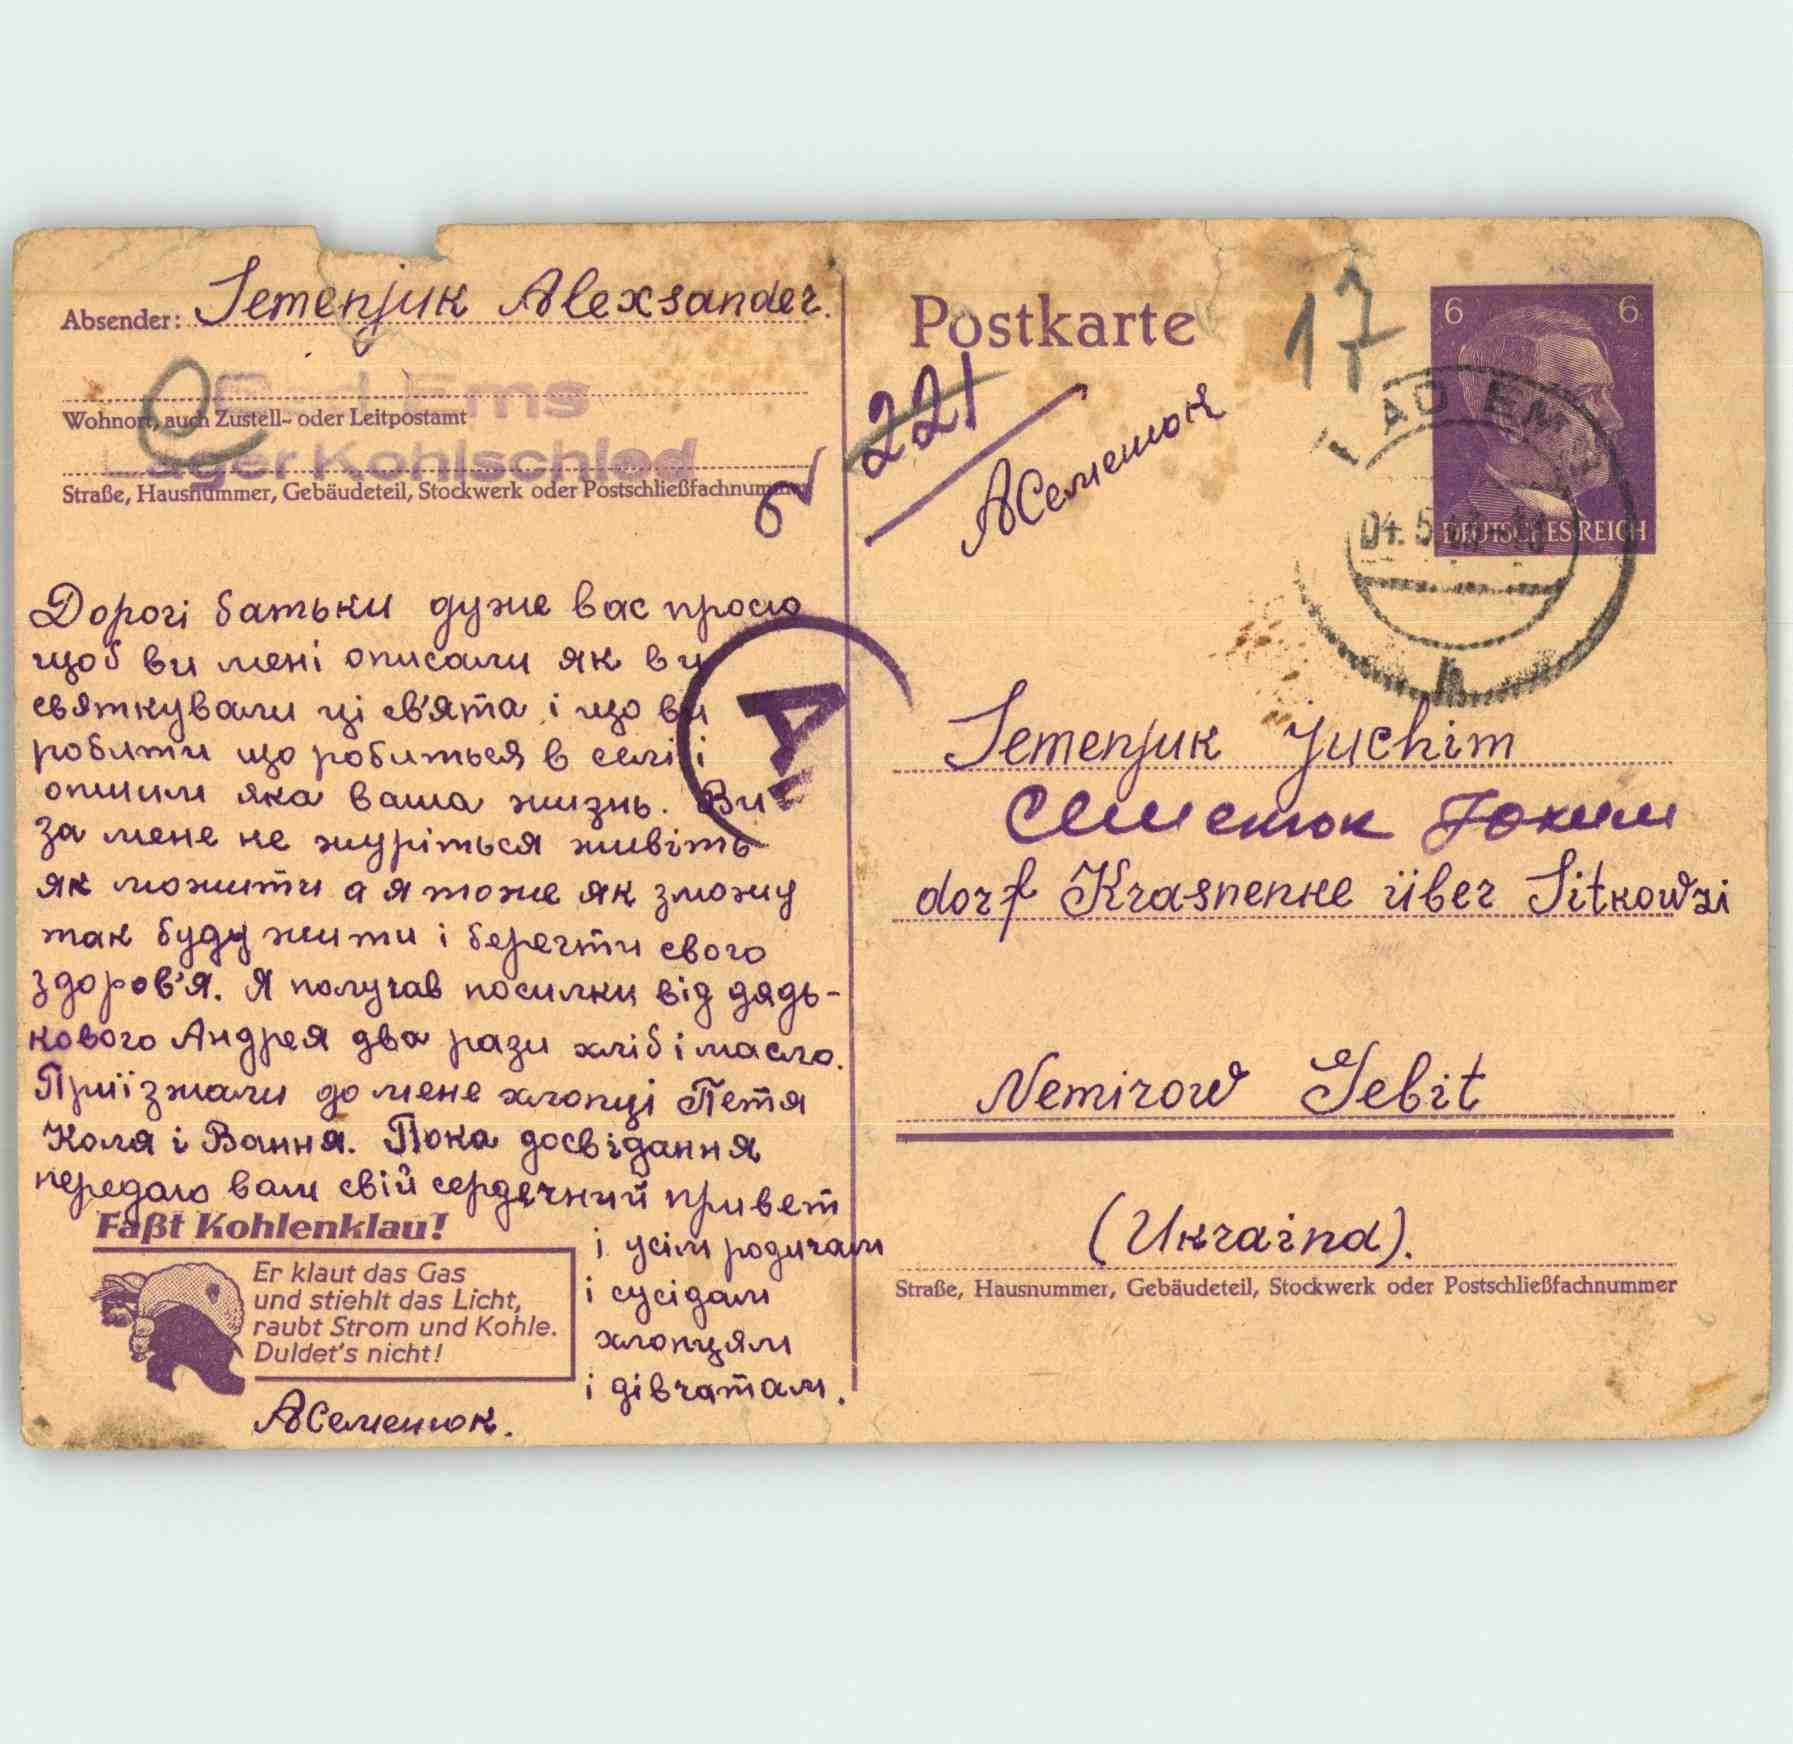 Absender: Semenjuk Alexsander.
Bad Ems
Wohnort, auch Zustell- oder Leitpostamt
Lager Kohlschled
Straße, Hausnummer, Gebäudeteil, Stockwerk oder Postschließfachnummer
Дорогі батьки дуже вас прошу
щоб ви мені описали як ви
святкували ці св'ята і що ви
робити що робиться в селі і
опишіли яка ваша жизнь. Ви
за мене не журіться живіть
як можити а я тоже як зможу
так буду жити і берегти свого
здоров'я. Я получав посилки від дядь-
кового Андрея два рази хліб і масло.
Приїзжали до мене хлопці Петя
Коля і Вання. Пока досвідання
передаю вам свій сердечний привет
і усім родичам
і сусідам
хлопцям
і дівчатам.
Faßt Kohlenklau!
Er klaut das Gas
und stiehlt das Licht,
raubt Strom und Kohle.
Duldet's nicht!
АСеменюк.
Postkarte
17
221
АСеменюк
6 6
DEUTSCHES REICH
BAD EMS
04.5.43
A
Semenjuk Juchim
Семенюк Юхим
dorf Krasnenke über Sitkowzi
Nemirow Gebit
(Ukraina).
Straße, Hausnummer, Gebäudeteil, Stockwerk oder Postschließfachnummer